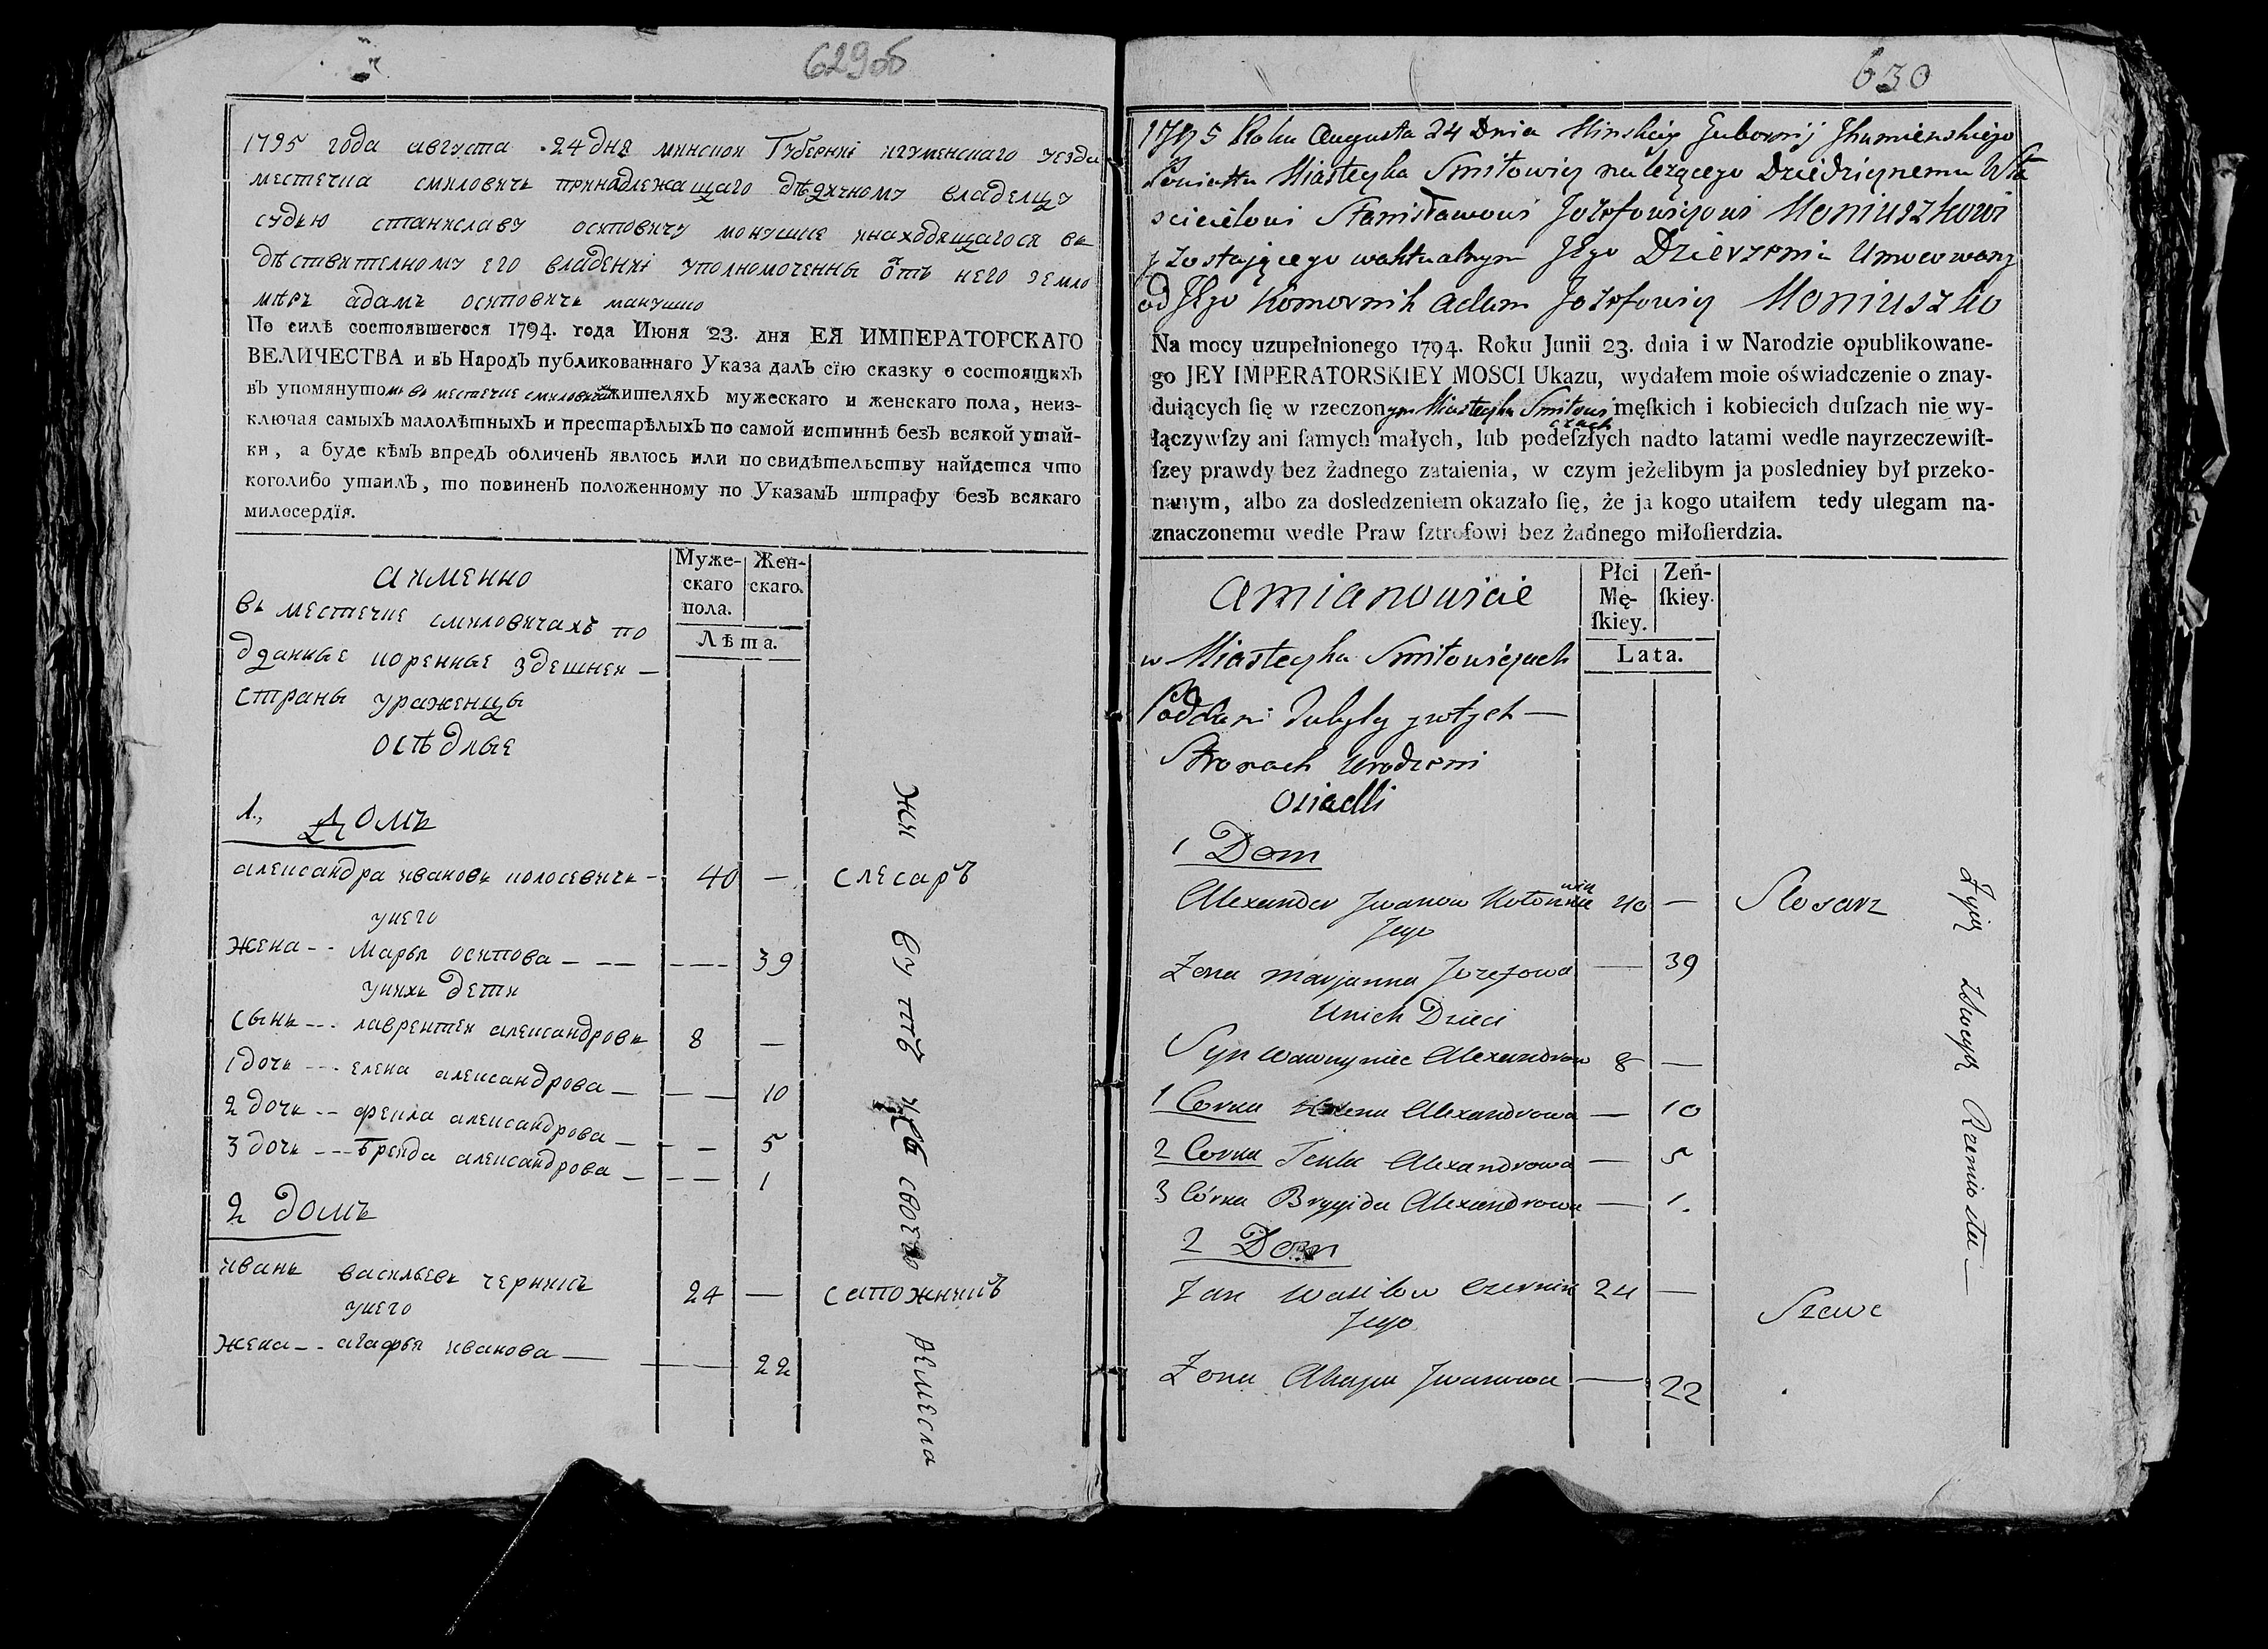 629об
1795 года августа 24 дня минской Губерніи игуменскаго уезда
местечка смиловичь принадлежащаго дѣдичному владелцу
судью станиславу осиповичу монушке инаходящагося въ
дѣствителному его владеніи уполномоченны отъ него земло
мѣръ адамъ осиповичь манушко
По силѣ состоявшегося 1794. года Июня 23. дня ЕЯ ИМПЕРАТОРСКАГО
ВЕЛИЧЕСТВА и въ Народъ публикованнаго Указа далъ сїю сказку о состоящихъ
въ упомянутомъ въ местечке смиловичахъ жителяхъ мужескаго и женскаго пола, неиз-
ключая самыхъ малолѣтныхъ и престарѣлыхъ по самой истиннѣ безъ всякой утай-
ки, а буде кѣмъ впредь обличенъ явлюсь или по свидѣтельству найдется что
коголибо утаилъ, то повиненъ положенному по Указамъ штрафу безъ всякаго
милосердїя.
Муже-
скаго
пола.
Жен-
скаго.
Лѣта.
а именно
въ местечке смиловичахъ по
дданные коренные здешней —
страны уроженцы
осѣдлые
1., Домъ
александра ивановъ колосевичь - 40 — слесаръ
унего
жена -- марья осипова — — — 39
унихъ дети
сынъ --- лаврентей александровъ 8 —
1 дочь --- елена александрова — — 10
2 дочь -- фекла александрова — — 5
3 дочь --- брекида александрова — — 1
2 домъ
иванъ васильевъ черникъ 24 — сапожникъ
унего
жена -- агафья иванова — — 22
жи вутъ изъ своего ремесла
630
1795 Roku Augusta 24 Dnia Minskiey Gubernij Jhumienskiego
Powiatu Miasteczka Smiłowicz należącego Dziedzicznemu Wła
scicielowi Stanisławowi Jozefowiczowi Moniuszkowi
y zostającego w aktualnym Jego Dzierżeniu Umocowany
od Jego Komornik Adam Jozefowicz Moniuszko
Na mocy uzupełnionego 1794. Roku Junii 23. dnia i w Narodzie opublikowane-
go JEY IMPERATORSKIEY MOSCI Ukazu, wydałem moie oświadczenie o znay-
duiących ſię w rzeczonym Miasteczku Smiłowiczach męſkich i kobiecich duſzach nie wy-
łączywſzy ani ſamych małych, lub podeſzłych nadto latami wedle nayrzeczewiſt-
ſzey prawdy bez żadnego zataienia, w czym jeżelibym ja posledniey był przeko-
nanym, albo za dosledzeniem okazało ſię, że ja kogo utaiłem tedy ulegam na-
znaczonemu wedle Praw ſztrofowi bez żadnego miłoſierdzia.
Płci
Mę-
ſkiey.
Zeń-
ſkiey.
Lata.
a mianowicie
w Miasteczku Smiłowiczach
Poddani
Stronach urodzeni
Osiadli
1 Dom
Alexander Jwanow 40 — Slosarz
Jego
Zona Maryanna Jozefowa — 39
Unich Dzieci
Syn Wawrzyniec Alexandrow 8 —
1 Corka Helena Alexandrowa — 10
2 Corka Tekla Alexandrowa — 5
3 Córka Brygida Alexandrowa — 1.
2 Dom
Jan Wasilow Czernik 24 — Szewc
Jego
Zona Ahapa Jwanowa — 22
Zyią z Swego Rzemiosła —